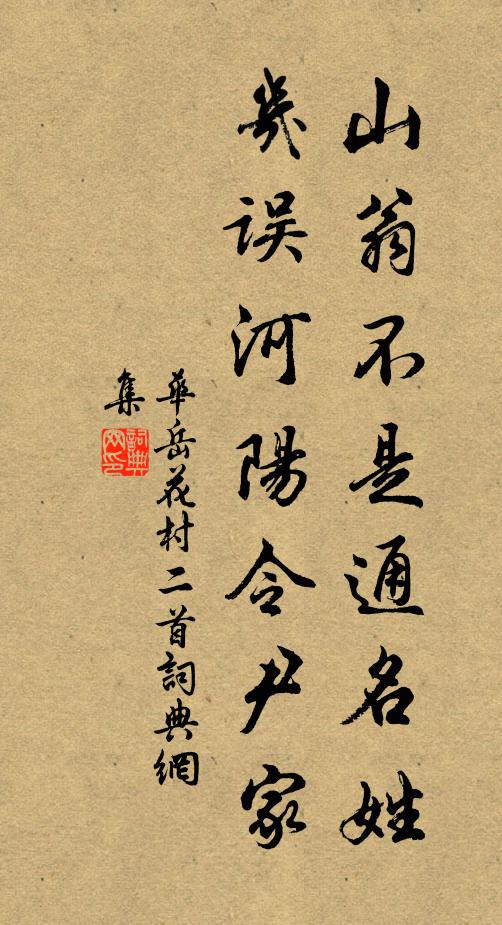 山翁不是通名姓
幾误河陽令尹家
華岳花村二首詞典網
集
詞典
網印